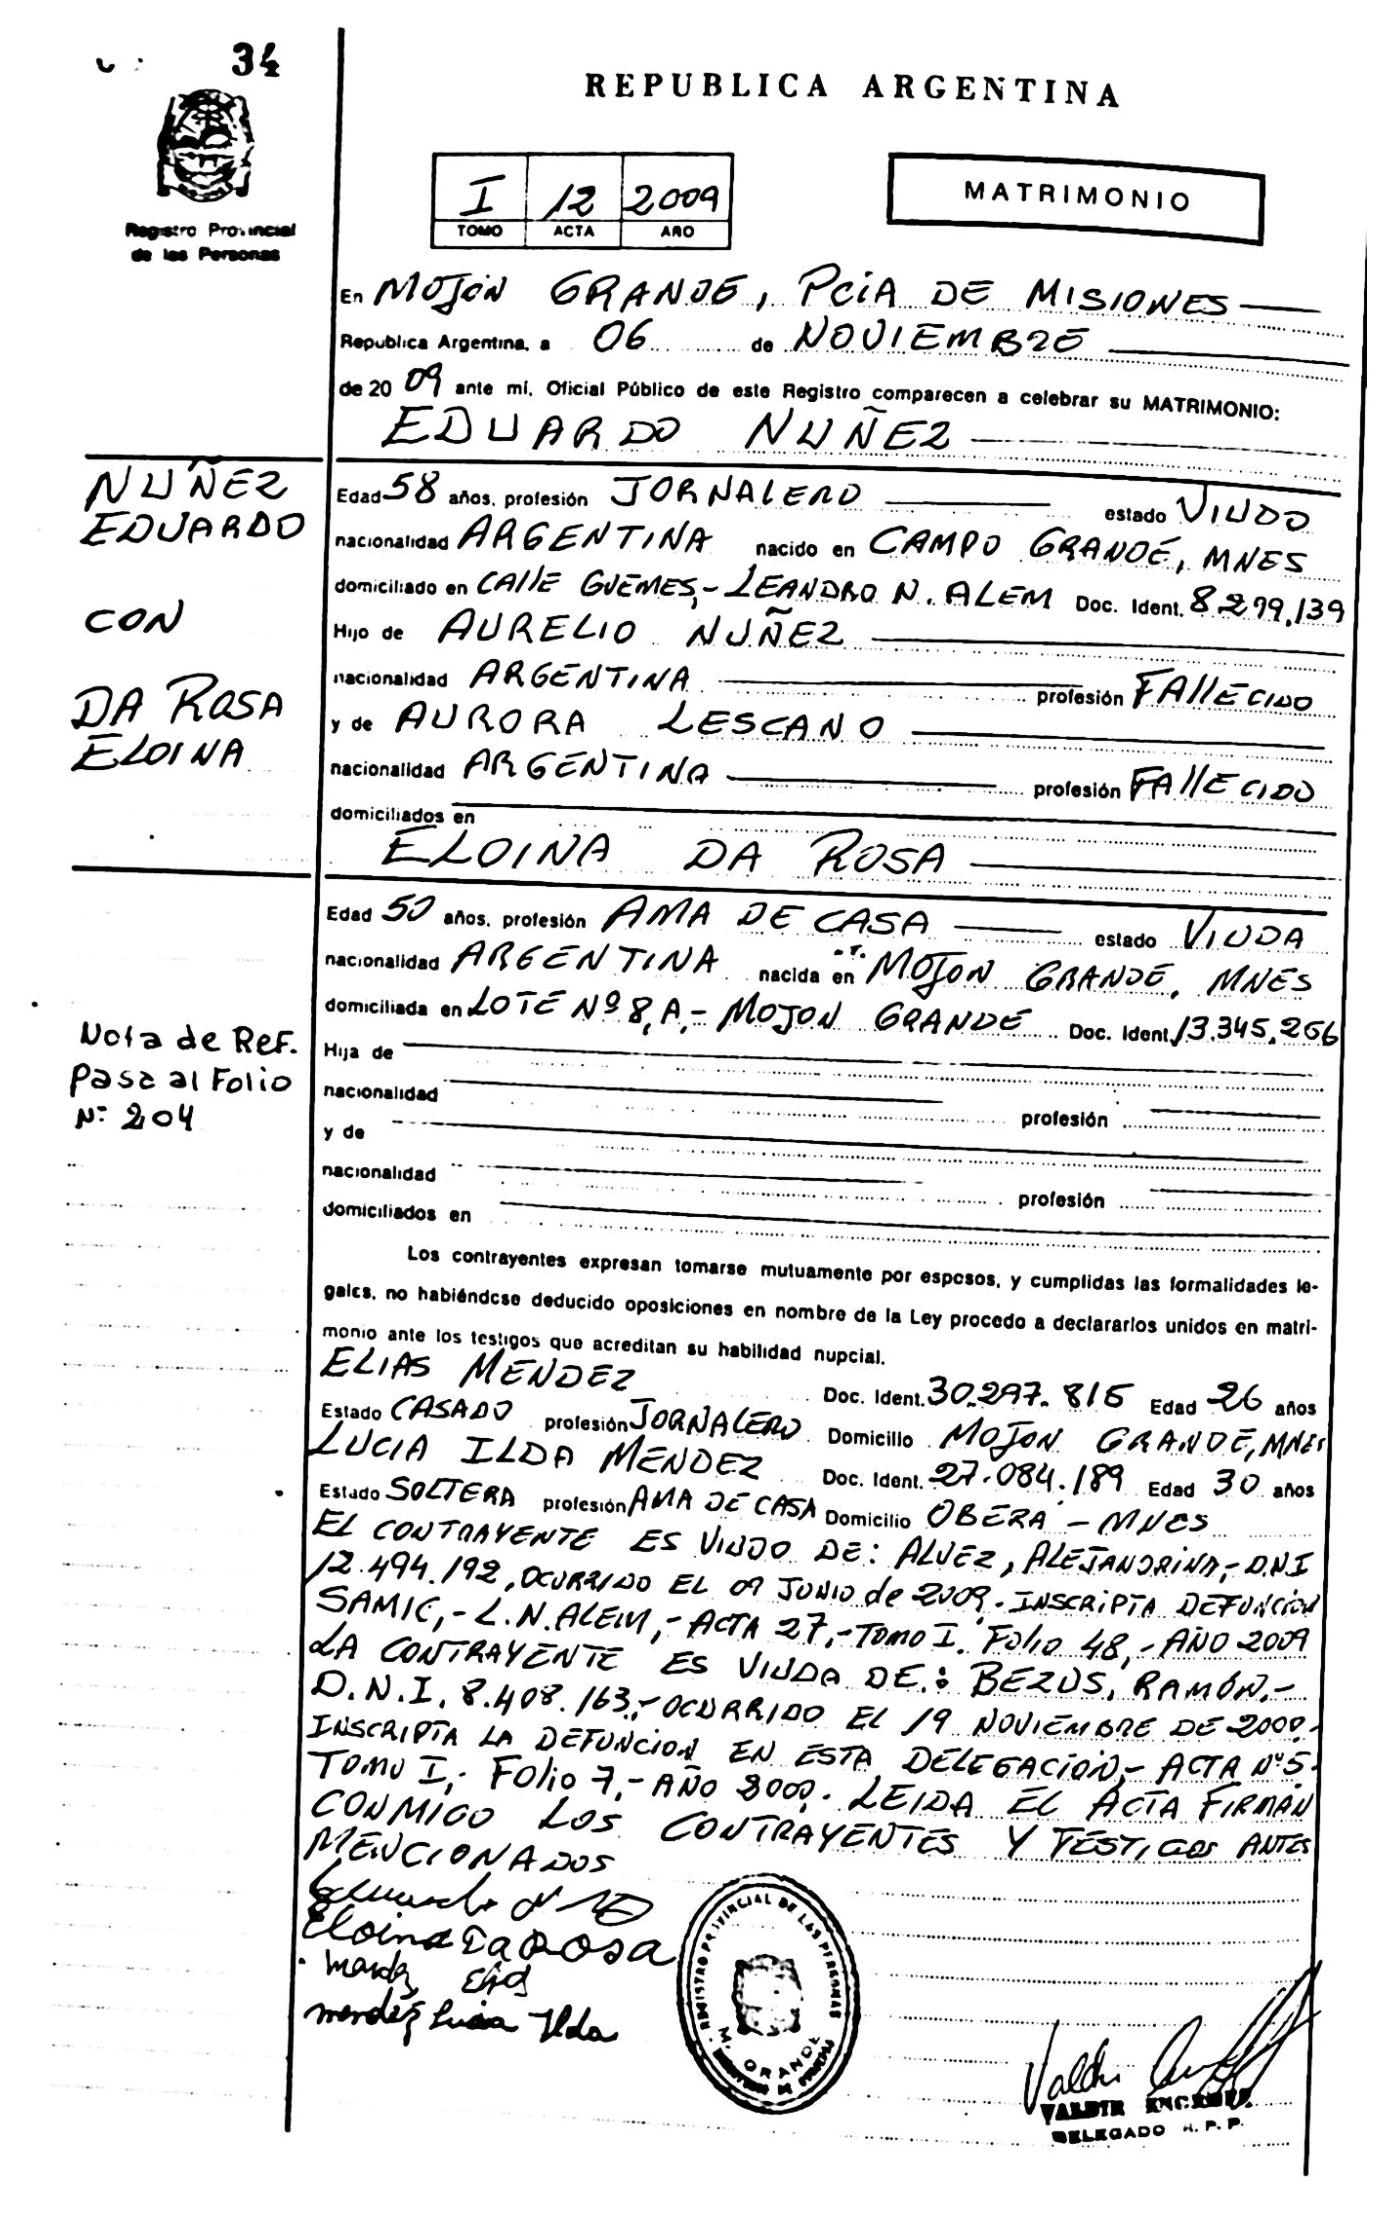 34
REPUBLICA ARGENTINA
Registro Provincial
de las Personas
I 12 2009
TOMO ACTA AÑO
MATRIMONIO
En MOJÓN GRANDE, PCIA DE MISIONES
Republica Argentina, a 06 de NOVIEMBRE
de 20 09 ante mí, Oficial Público de este Registro comparecen a celebrar su MATRIMONIO:
EDUARDO NUÑEZ
NUÑEZ
EDUARDO
CON
DA ROSA
ELOINA
Edad 58 años, profesión JORNALERO estado VIUDO
nacionalidad ARGENTINA nacido en CAMPO GRANDE, MNES
domiciliado en CALLE GUEMES,- LEANDRO N. ALEM Doc. Ident. 8.299.139
Hijo de AURELIO NUÑEZ
nacionalidad ARGENTINA profesión FALLECIDO
y de AURORA LESCANO
nacionalidad ARGENTINA profesión FALLECIDO
domiciliados en
ELOINA DA ROSA
Edad 50 años, profesión AMA DE CASA estado VIUDA
nacionalidad ARGENTINA nacida en MOJON GRANDE, MNES
domiciliada en LOTE Nº 8,A,- MOJON GRANDE Doc. Ident. 13.345.266
Nota de Ref.
Pasa al Folio
Nº 204
Hija de
nacionalidad profesión
y de
nacionalidad profesión
domiciliados en
Los contrayentes expresan tomarse mutuamente por esposos, y cumplidas las formalidades le-
gales, no habiéndose deducido oposiciones en nombre de la Ley procedo a declararlos unidos en matri-
monio ante los testigos que acreditan su habilidad nupcial.
ELIAS MENDEZ Doc. Ident. 30.297.815 Edad 26 años
Estado CASADO profesión JORNALERO Domicilio MOJON GRANDE, MNES
LUCIA ILDA MENDEZ Doc. Ident. 27.084.189 Edad 30 años
Estado SOLTERA profesión AMA DE CASA Domicilio OBERÁ - MNES
EL CONTRAYENTE ES VIUDO DE: ALVEZ, ALEJANDRINA,- D.N.I
12.494.192, OCURRIDO EL 09 JUNIO de 2009. INSCRIPTA DEFUNCION
SAMIC,- L.N. ALEM,- ACTA 27,- TOMO I. Folio 48,- AÑO 2009
LA CONTRAYENTE ES VIUDA DE: BEZUS, RAMÓN,-
D.N.I. 8.408.163,- OCURRIDO EL 19 NOVIEMBRE DE 2000.
INSCRIPTA LA DEFUNCION EN ESTA DELEGACIÓN,- ACTA Nº 5.
TOMO I,- Folio 7,- AÑO 2000. LEIDA EL ACTA FIRMAN
CONMIGO LOS CONTRAYENTES Y TESTIGOS ANTES
MENCIONADOS
Eloina Da Rosa
mendez Elias
mendez Lucia Ilda
REGISTRO PROVINCIAL DE LAS PERSONAS
M. GRANDE
VALDIR
DELEGADO R. P. P.